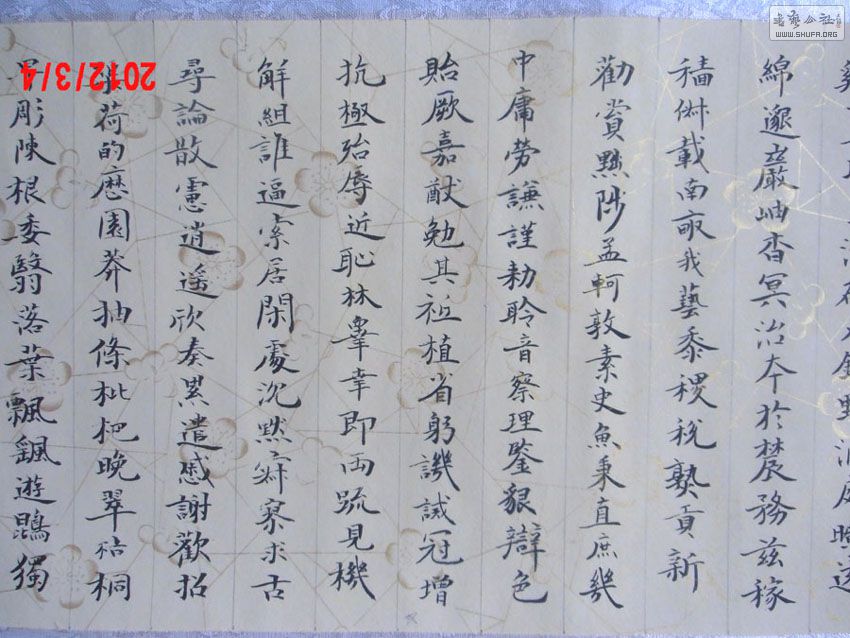 书艺公社
WWW.SHUFA.ORG
綿邈巖岫杳冥治本於農務茲稼
穡俶載南畝我藝黍稷稅熟貢新
勸賞黜陟孟軻敦素史魚秉直庶幾
中庸勞謙謹勑聆音察理鑒貌辯色
貽厥嘉猷勉其祗植省躬譏誡寵增
抗極殆辱近恥林皐幸即兩疏見機
解組誰逼索居閑處沉默寂寥求古
尋論散慮逍遙欣奏累遣慼謝歡招
荷的歷園莽抽條枇杷晚翠梧桐
彫陳根委翳落葉飄颻遊鵾獨
2012/3/4